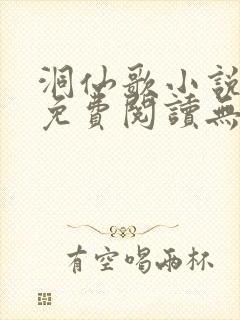 洞仙歌小說
免費閱讀無
有空喝兩杯